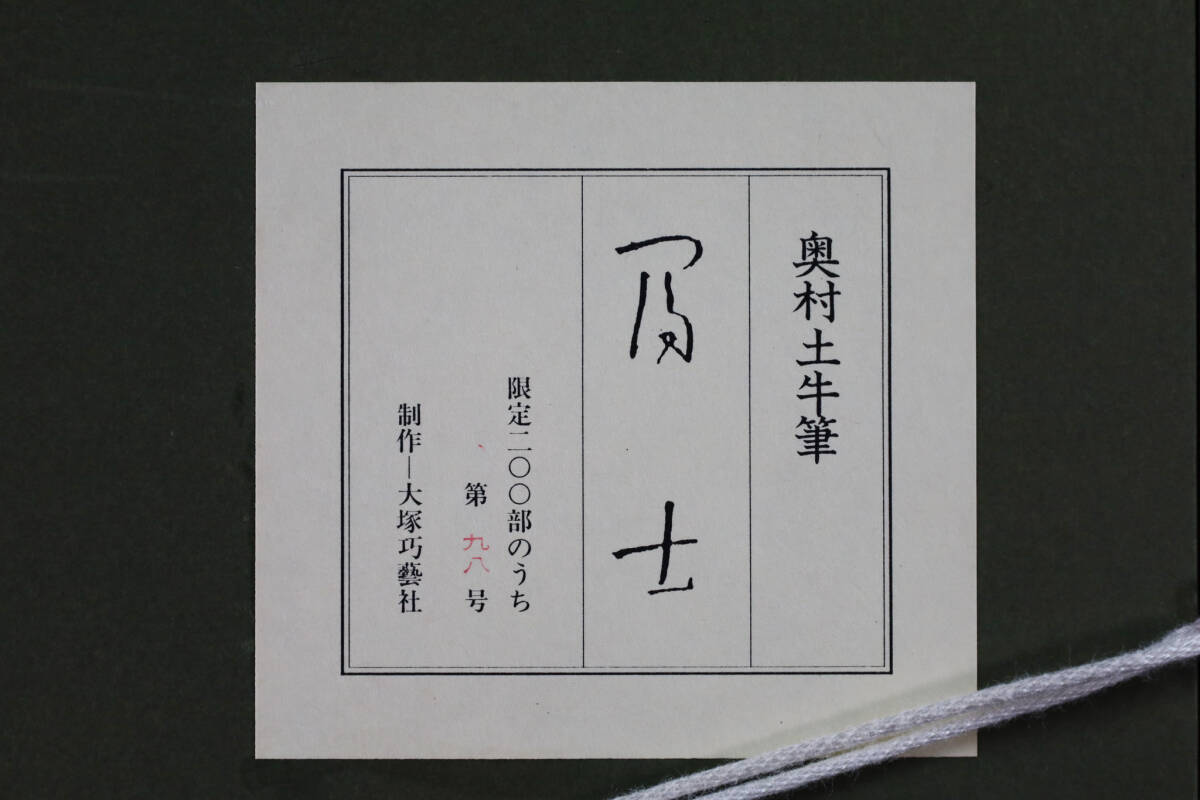 奥村土牛筆
富士
限定二〇〇部のうち
第九八号
制作―大塚巧藝社